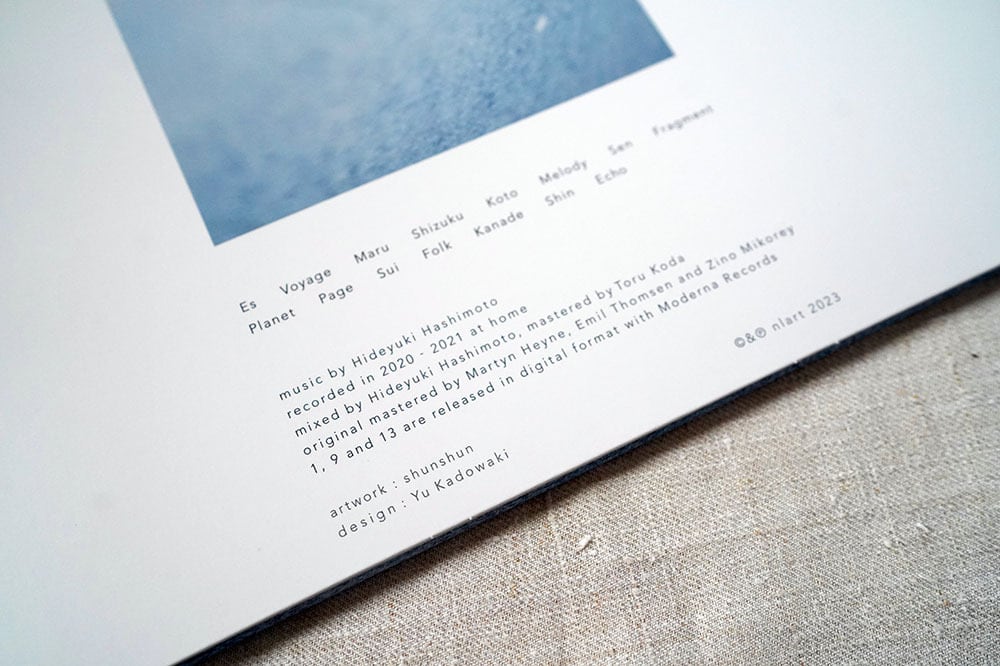 Es Voyage Maru Shizuku Koto Melody Sen Fragment
Planet Page Sui Folk Kanade Shin Echo
music by Hideyuki Hashimoto
recorded in 2020 - 2021 at home
mixed by Hideyuki Hashimoto, mastered by Toru Koda
original mastered by Martyn Heyne, Emil Thomsen and Zino Mikorey
1, 9 and 13 are released in digital format with Moderna Records
artwork : shunshun
design : Yu Kadowaki
©&℗ nlart 2023